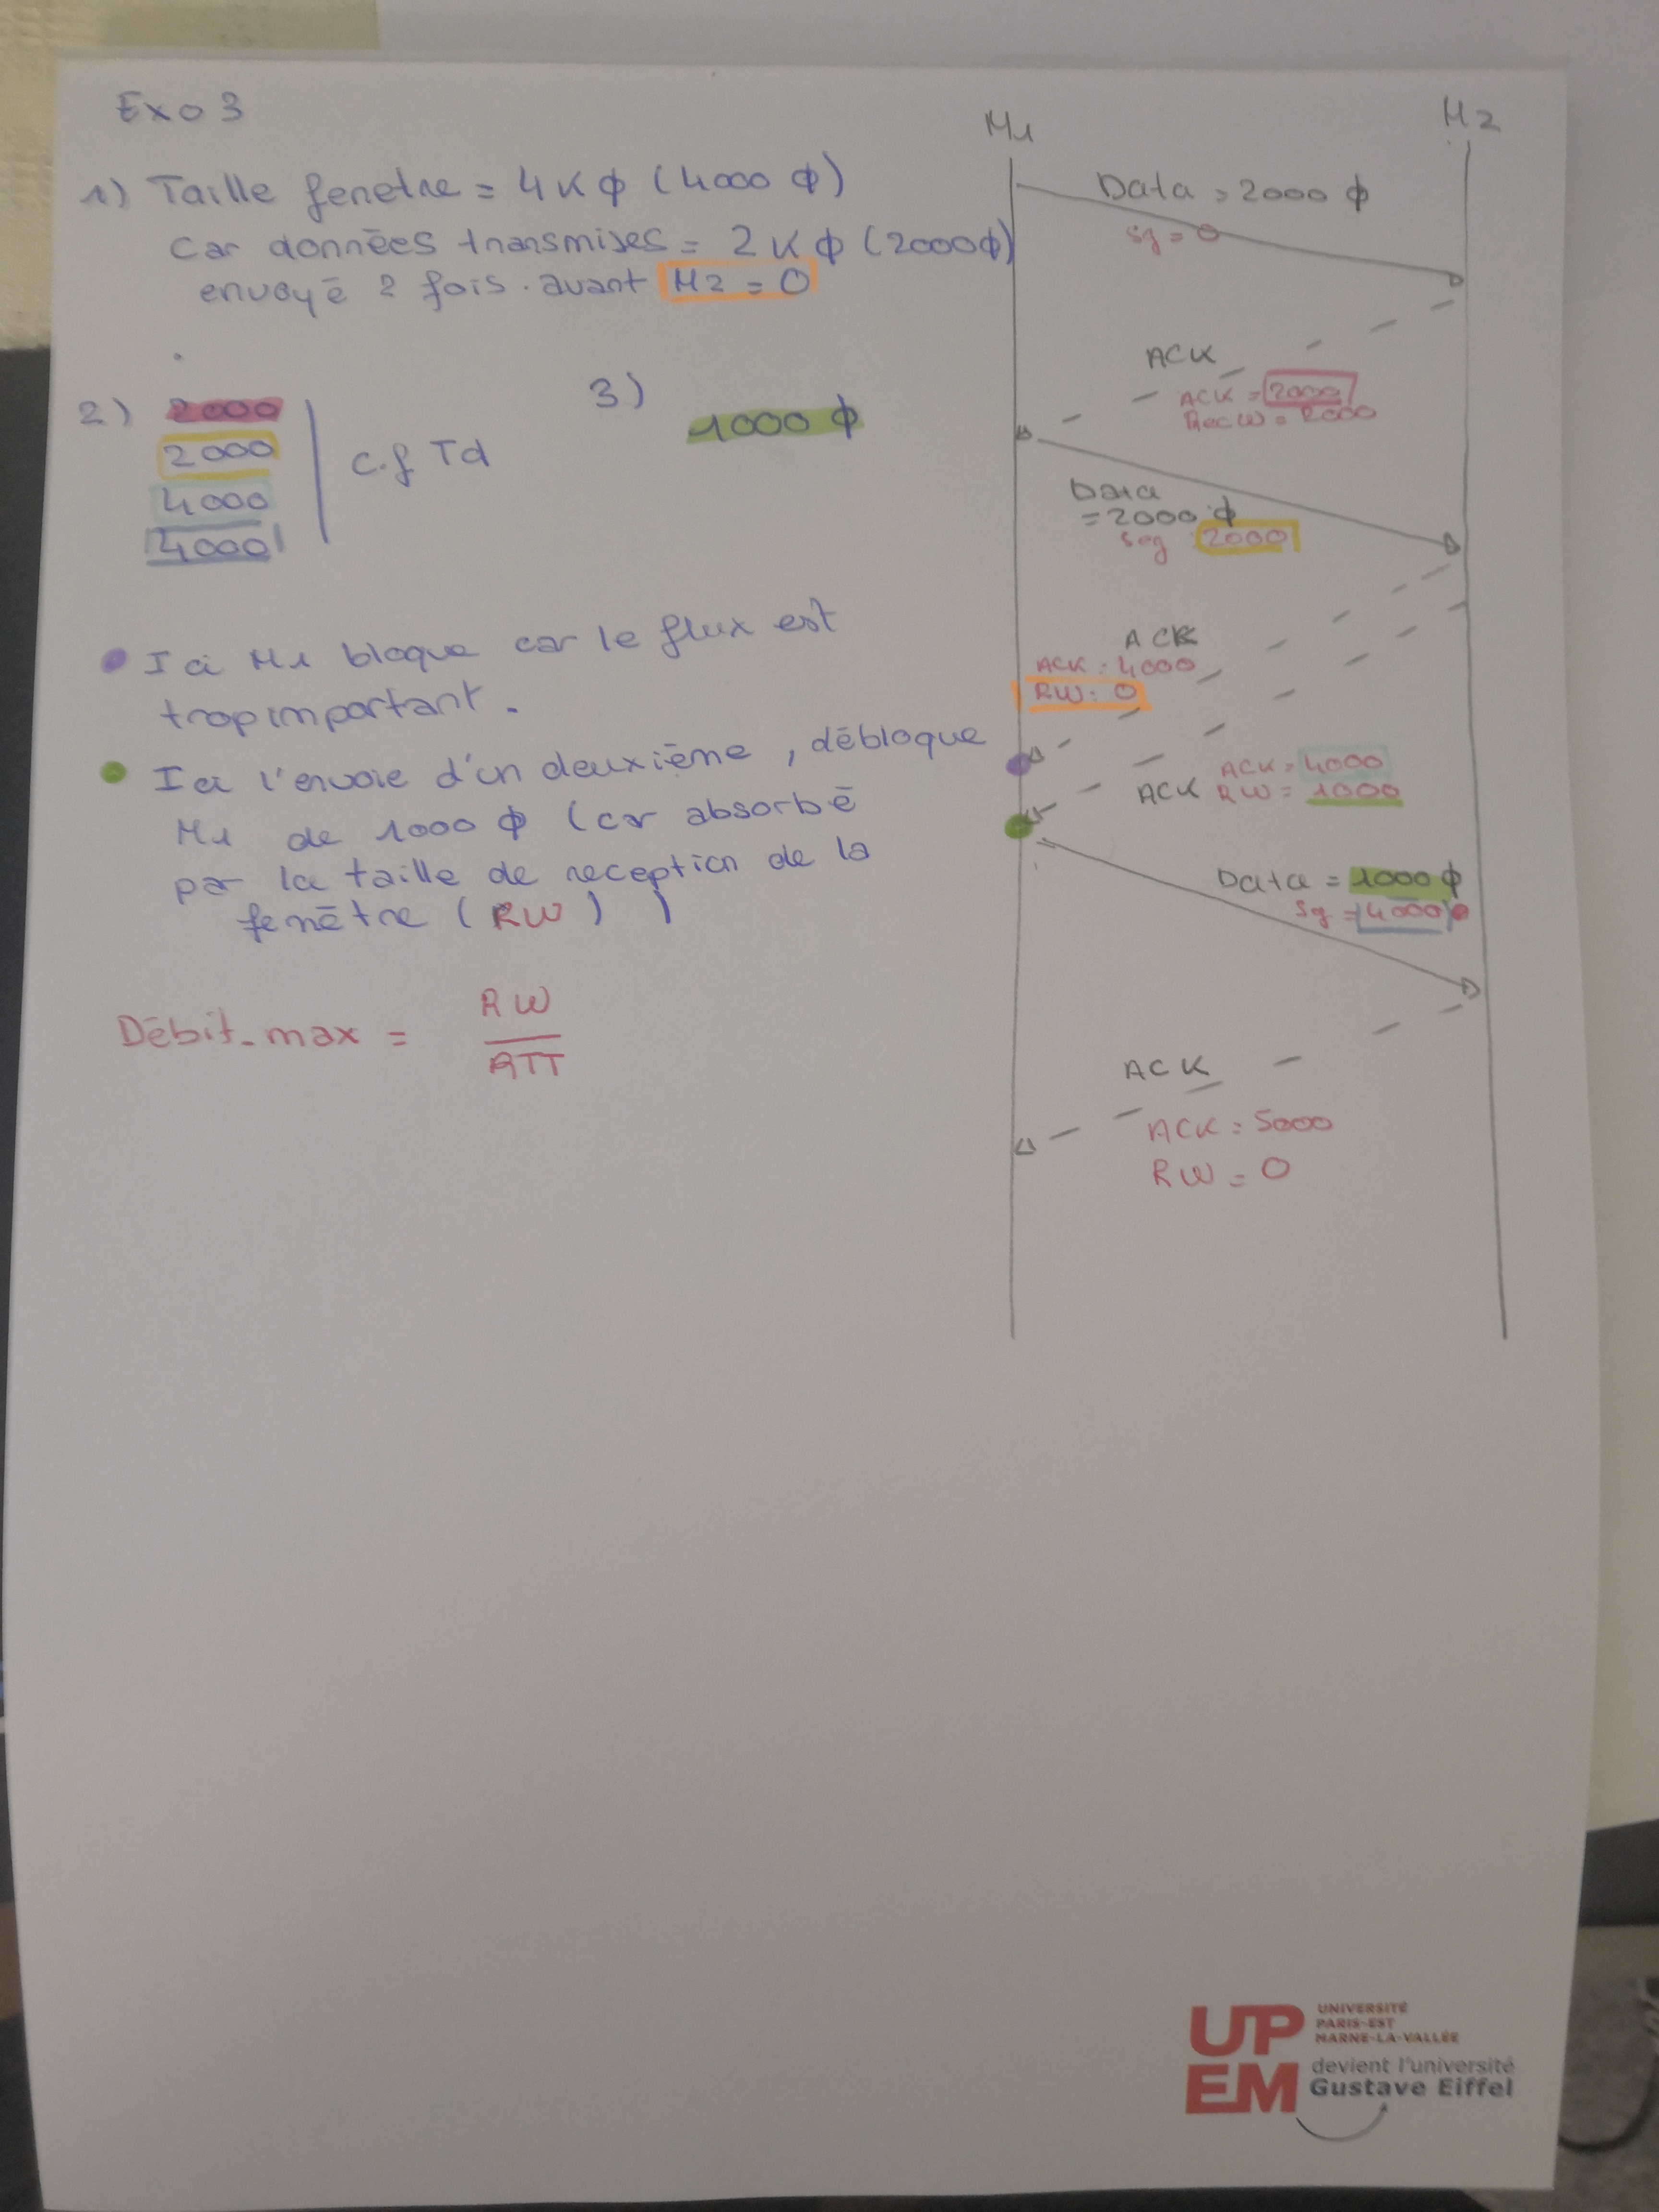 Exo 3
1) Taille fenetre = 4Kϕ (4000 ϕ)
car données transmises = 2Kϕ (2000ϕ)
envoyé 2 fois. avant M2 = 0
2) 2000
2000
4000
4000
c.f Td
3) 1000 ϕ
Ici M1 bloque car le flux est
trop important.
Ici l'envoie d'un deuxième, débloque
M1 de 1000 ϕ (car absorbé
par la taille de reception de la
fenêtre (RW) )
Débit_max = RW
RTT
M1 M2
Data = 2000 ϕ
sq = 0
ACK
ACK = 2000
Rec W = 2000
Data
= 2000 ϕ
seg 2000
ACK
ACK : 4000
RW : 0
ACK ACK = 4000
RW = 1000
Data = 1000 ϕ
Sq = 4000
ACK
ACK = 5000
RW = 0
UPEM
UNIVERSITÉ
PARIS-EST
MARNE-LA-VALLÉE
devient l'université
Gustave Eiffel